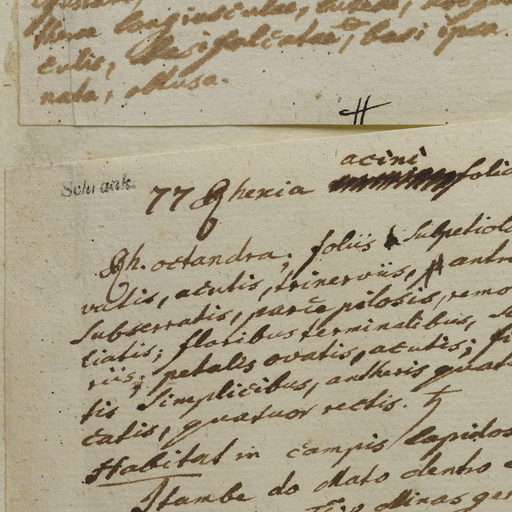 culis, basi
nata, obtusa.
Schrank.
acini
77 Rhexia folia
Rh. octandra; foliis subpetiola
vatis, acutis, trinerviis,
subserratis, parce pilosis, remo
tiatis; floribus terminalibus,
riis; petalis ovatis, acutis; fi
tis simplicibus, antheris quatu
catis, quatuor rectis.
Habitat in campis lapidos
Itambe do Mato dentro
Minas ger